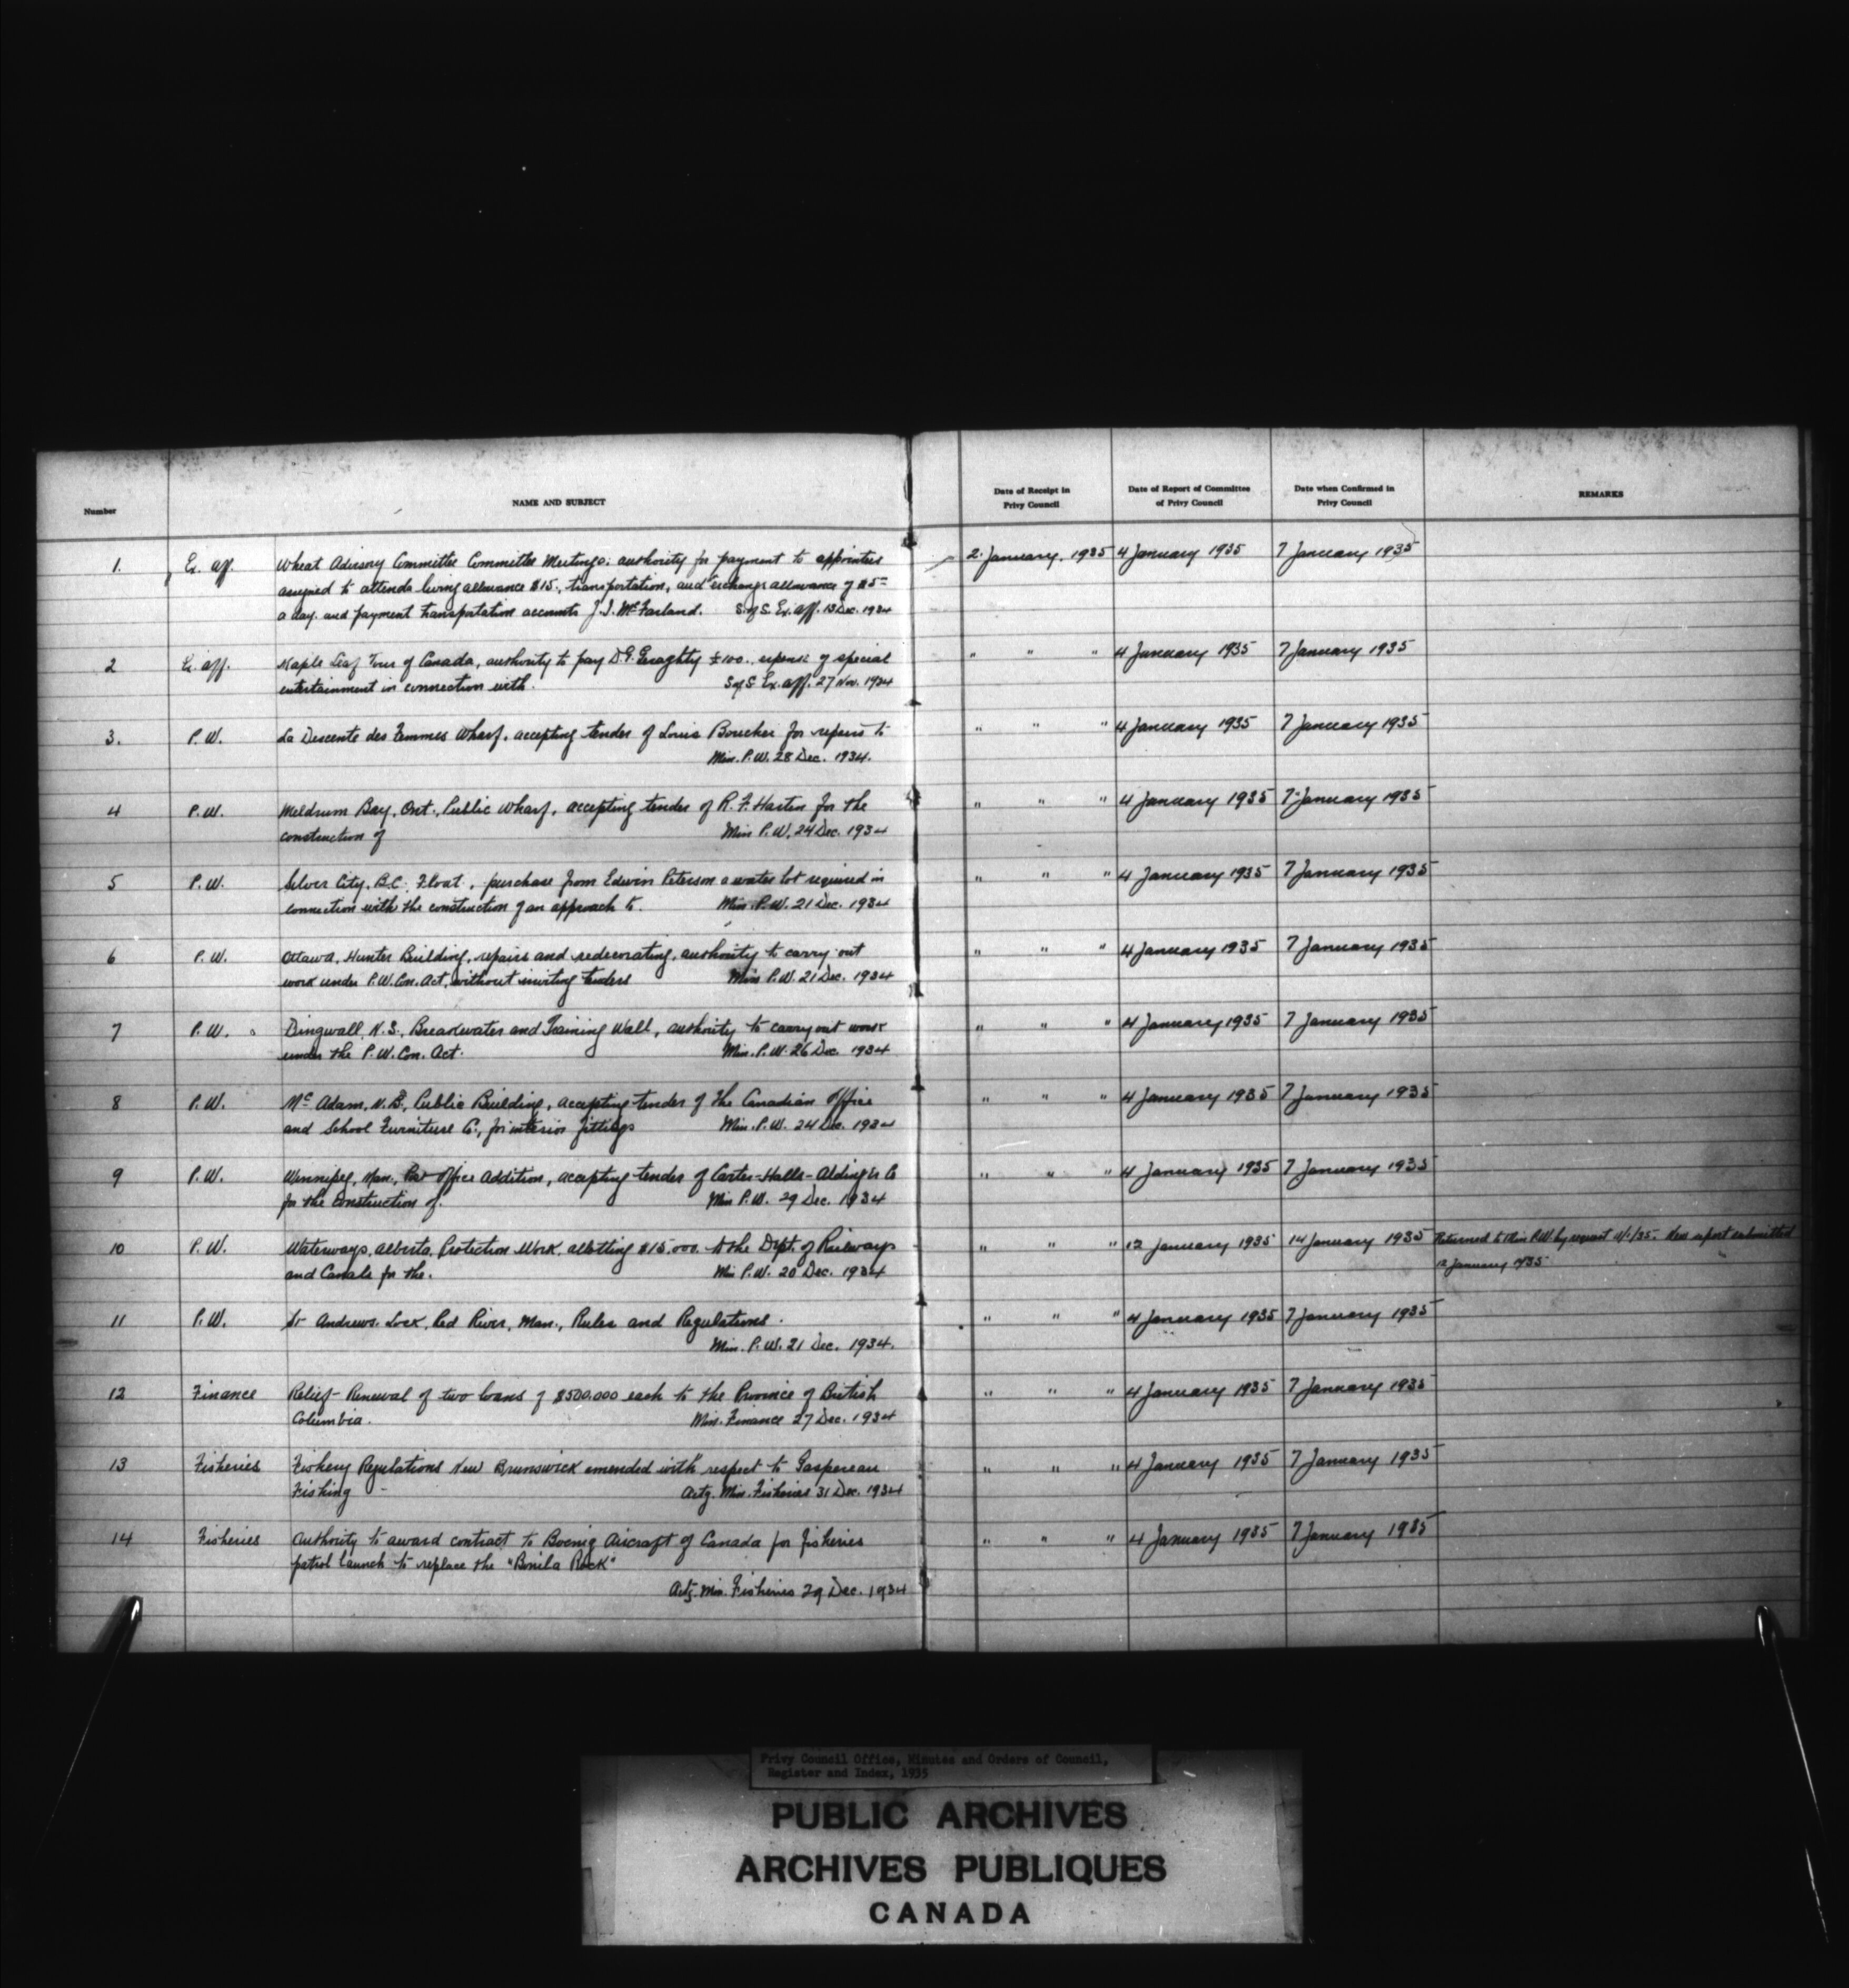 Number
NAME AND SUBJECT
Date of Receipt in
Privy Council
Date of Report of Committee
of Privy Council
Date when Confirmed in
Privy Council
REMARKS
1. Ex. aff. Wheat Advisory Committee Committee Meetings: authority for payment to appointees 2 January, 1935 4 January 1935 7 January 1935
assigned to attend living allowance $15., transportation, and exchange allowance of $5=
a day. and payment transportation accounts J.I. McFarland. S of S. Ex. aff. 13 Dec. 1934
2 Ex. aff. Maple Leaf Tour of Canada, authority to pay D.G. Geraghty £100. expense of special " " " 4 January 1935 7 January 1935
entertainment in connection with. S of S Ex. aff. 27 Nov. 1934
3. P.W. La Descente des Femmes Wharf, accepting tender of Louis Boucher for repairs to " " " 4 January 1935 7 January 1935
Min. P.W. 28 Dec. 1934.
4 P.W. Meldrum Bay, Ont., Public Wharf, accepting tender of R.F. for the " " " 4 January 1935 7 January 1935
construction of Min P.W. 24 Dec. 1934
5 P.W. Silver City, B.C., Float, purchase from Edwin Peterson a water lot required in " " " 4 January 1935 7 January 1935
connection with the construction of an approach to. Min. P.W. 21 Dec. 1934
6 P.W. Ottawa, Hunter Building, repairs and redecorating, authority to carry out " " " 4 January 1935 7 January 1935
work under P.W. Con. Act, without inviting tenders Min P.W. 21 Dec. 1934
7 P.W. Dingwall, N.S., Breakwater and Training Wall, authority to carry out work " " " 4 January 1935 7 January 1935
under the P.W. Con. Act. Min. P.W. 26 Dec. 1934
8 P.W. Mc Adam, N.B., Public Building, accepting tender of the Canadian Office " " " 4 January 1935 7 January 1935
and School Furniture Co., for interior fittings Min. P.W. 24 Dec. 1934
9 P.W. Winnipeg, Man., Office Addition, accepting tender of Carter-Halls-Alding'r Co " " " 4 January 1935 7 January 1935
for the construction of. Min P.W. 29 Dec. 1934
10 P.W. Waterways, Alberta, Protection Work, allotting $15,000. to the Dept. of Railways " " " 12 January 1935 14 January 1935 Returned to Min P.W. by request New report submitted
and Canals for the. Min P.W. 20 Dec. 1934 12 January 1935
11 P.W. St Andrews Lock, Red River, Man., Rules and Regulations. " " " 4 January 1935 7 January 1935
Min. P.W. 21 Dec. 1934.
12 Finance Relief- Renewal of two loans of $500,000 each to the Province of British " " " 4 January 1935 7 January 1935
Columbia. Min. Finance 27 Dec. 1934
13 Fisheries Fishery Regulations New Brunswick amended with respect to Gaspereau " " " 4 January 1935 7 January 1935
Fishing - Actg. Min. Fisheries 31 Dec. 1934
14 Fisheries Authority to award contract to Boeing Aircraft of Canada for fisheries " " " 4 January 1935 7 January 1935
patrol launch to replace the "Bonila Rock"
Actg. Min. Fisheries 29 Dec. 1934
Privy Council Office, Minutes and Orders of Council,
Register and Index, 1935
PUBLIC ARCHIVES
ARCHIVES PUBLIQUES
CANADA